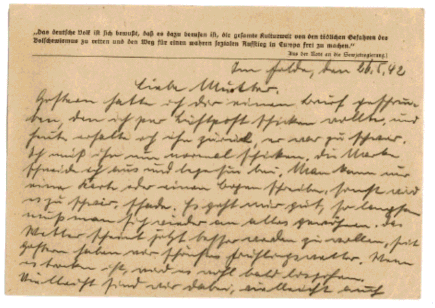 „Das deutsche Volk ist sich bewußt, daß es dazu berufen ist, die gesamte Kulturwelt von den tödlichen Gefahren des
Bolschewismus zu retten und den Weg für einen wahren sozialen Aufstieg in Europa frei zu machen.“
(Aus der Note an die Sowjetregierung.)
Im Felde, den 26.5.42
Liebe Mutter.
Gestern hatte ich dir einen Brief geschrie-
ben, den ich per Luftpost schicken wollte, und
heut erhalte ich ihn zurück, er war zu schwer.
Ich muß ihn nun normal schicken. Die Marke
schneide ich aus und lege sie bei. Man kann nur
eine Karte oder einen Bogen schreiben, sonst wird
es zu schwer. Schade. Es geht mir gut, so langsam
muß man sich wieder an alles gewöhnen. Das
Wetter scheint jetzt besser werden zu wollen, seit
gestern haben wir schönstes Frühlingswetter. Wenn
es trocken ist, wird es wohl bald losgehen.
Vielleicht sind wir dabei, vielleicht auch